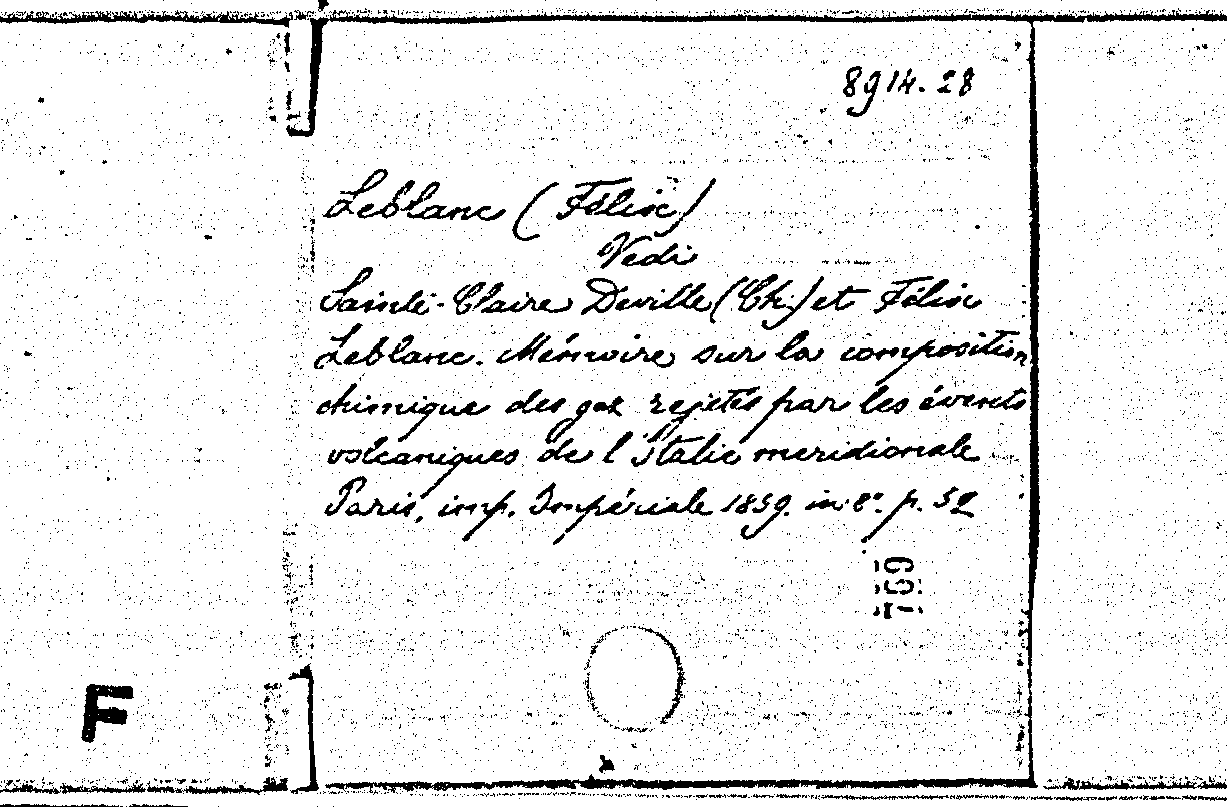 8914.28
Leblanc (Félix)
Vedi
Sainte-Claire Deville (Ch.) et Félix
Leblanc. Mémoire sur la composition
chimique des gaz rejetés par les évents
volcaniques de l'Italie meridionale
Paris, imp. Impériale 1859. in 8°. p. 52
169
F